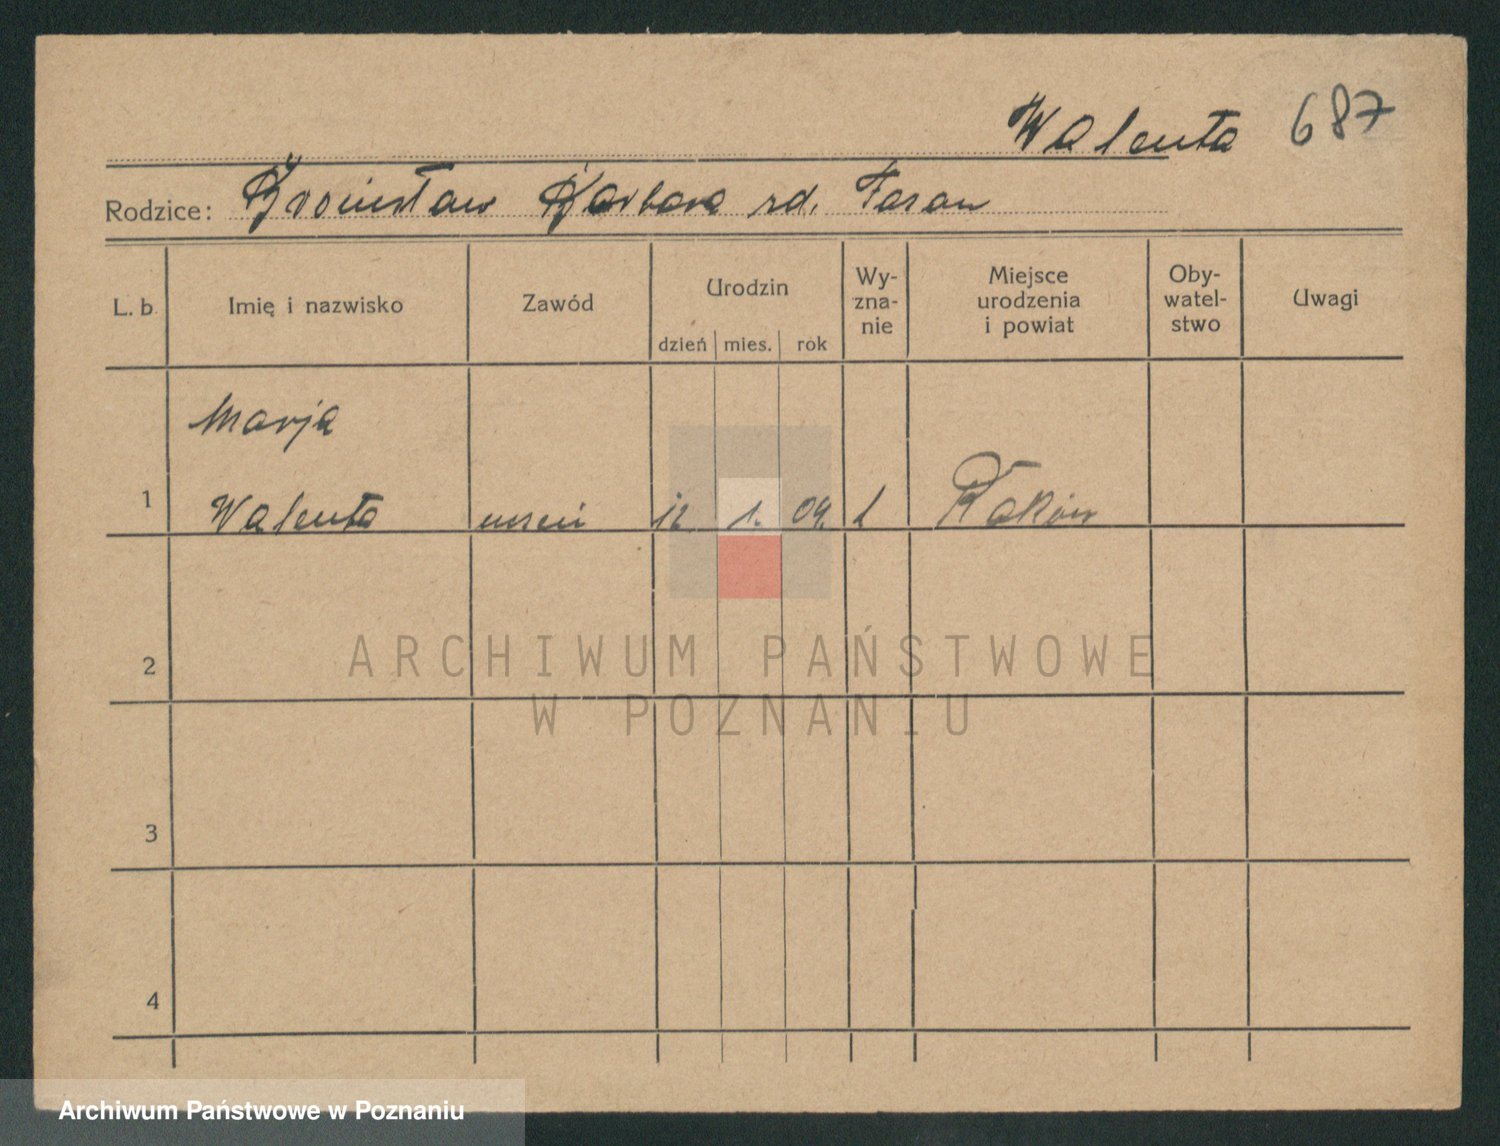 Walenta 687
Rodzice: Bronisław Barbara zd.
L. b. Imię i nazwisko Zawód Urodzin Wy-zna-nie Miejsce urodzenia i powiat Oby-watel-stwo Uwagi
dzień mies. rok
Marja
1 Walenta 12 1. 09.
2
ARCHIWUM PAŃSTWOWE
W POZNANIU
3
4
Archiwum Państwowe w Poznaniu